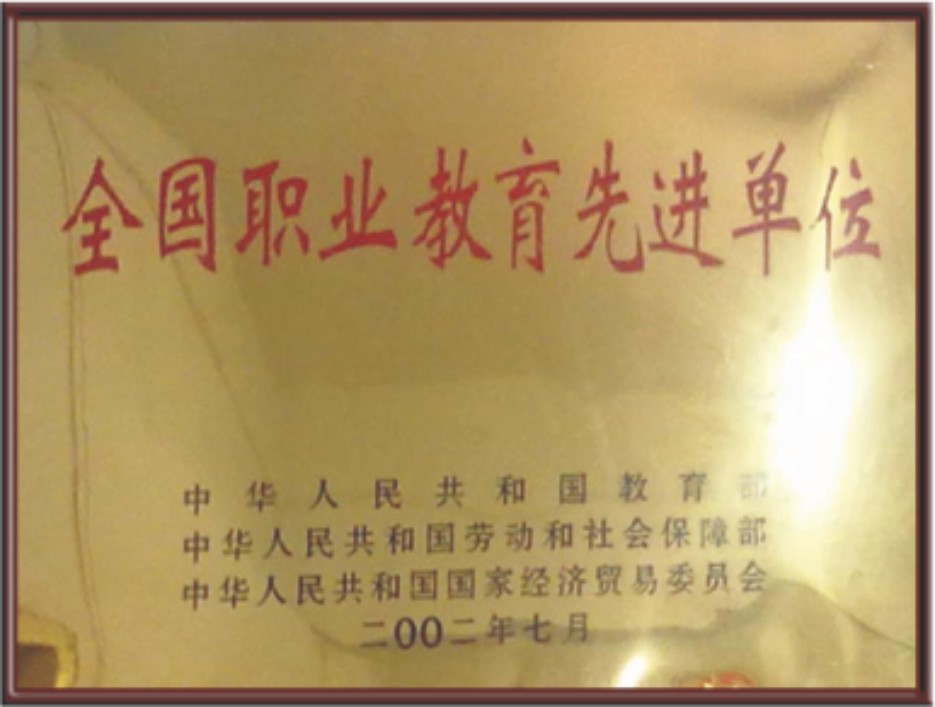 全国职业教育先进单位
中华人民共和国教育部
中华人民共和国劳动和社会保障部
中华人民共和国国家经济贸易委员会
二00二年七月